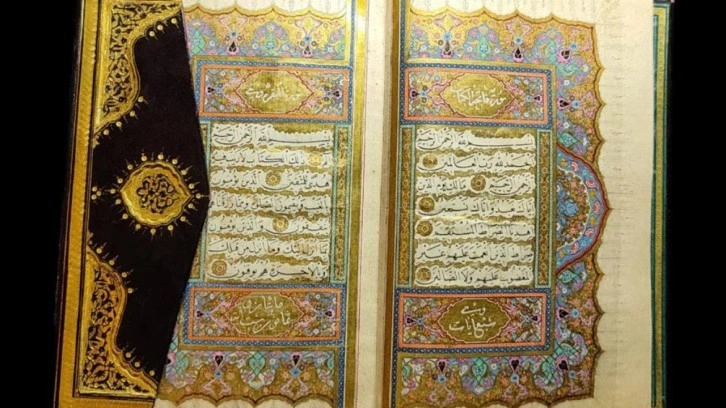 بسم الله الرحمن الرحيم
الحمد لله رب العالمين
الرحمن الرحيم مالك يوم الدين
اياك نعبد واياك نستعين
اهدنا الصراط المستقيم
صراط الذين انعمت عليهم غير
المغضوب عليهم ولا الضالين
وهي
سبع آيات
بسم الله الرحمن الرحيم
الم ذلك الكتاب لا ريب فيه
هدى للمتقين الذين يؤمنون
بالغيب ويقيمون الصلوة ومما رزقناهم
ينفقون والذين يؤمنون
بما انزل اليك وما انزل من قبلك
وبالاخرة هم يوقنون